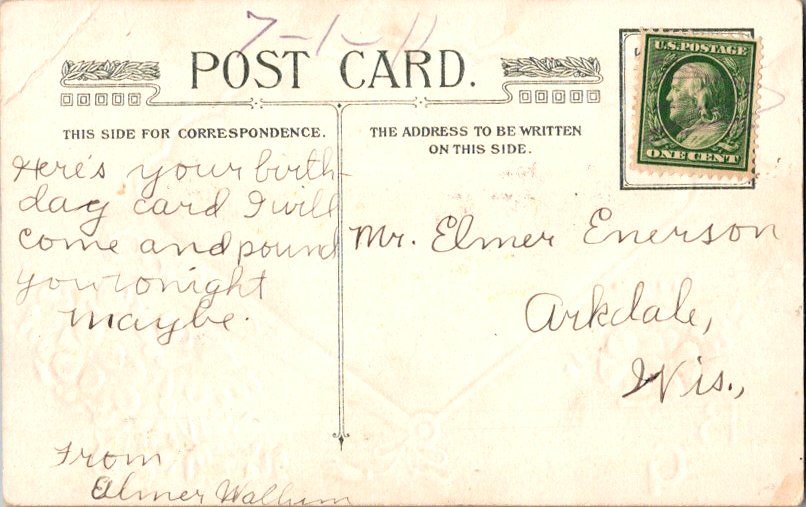 7-1-11
POST CARD.
U.S. POSTAGE
ONE CENT
THIS SIDE FOR CORRESPONDENCE.
THE ADDRESS TO BE WRITTEN
ON THIS SIDE.
Here's your birth-
day card I will
come and pound
you tonight
maybe.
From
Elmer Wallum
Mr. Elmer Enerson
Arkdale,
Wis.,